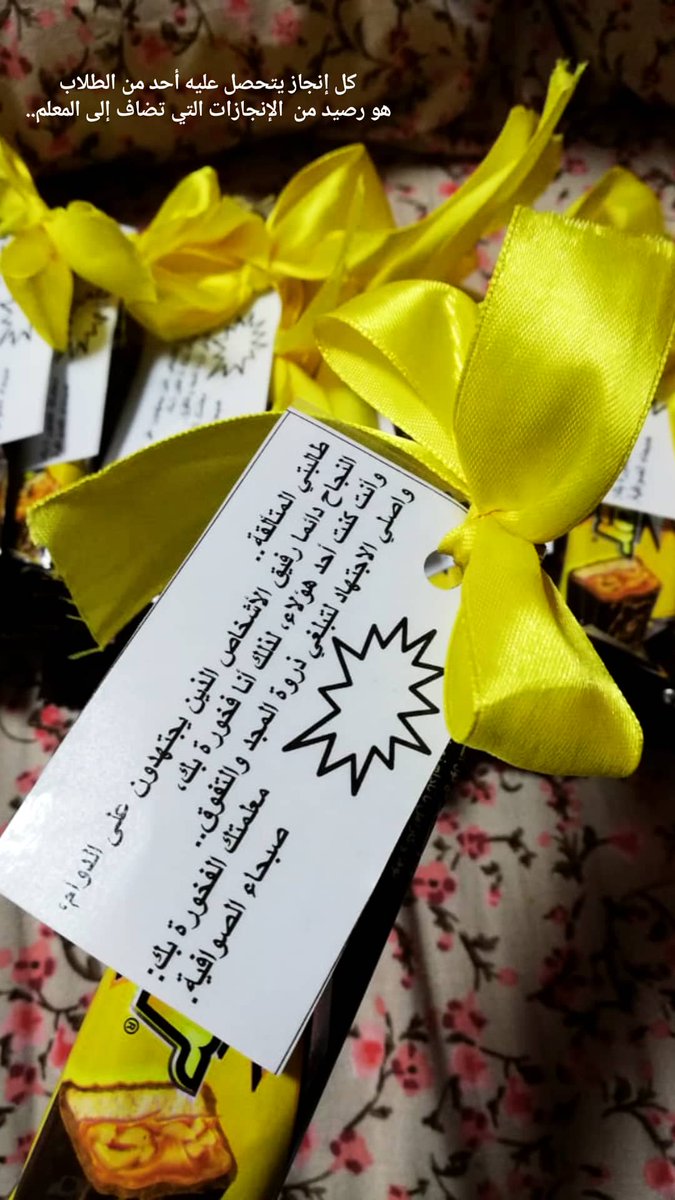 كل إنجاز يتحصل عليه أحد من الطلاب
هو رصيد من الإنجازات التي تضاف إلى المعلم..
طالبتي المتألقة..
النجاح دائما رفيق الأشخاص الذين يجتهدون على الدوام،
وأنت كنت أحد هؤلاء، لذلك أنا فخورة بك،
واصلي الاجتهاد لتبلغي ذروة المجد والتفوق..
معلمتك الفخورة بك:
صبحاء الصوافية.